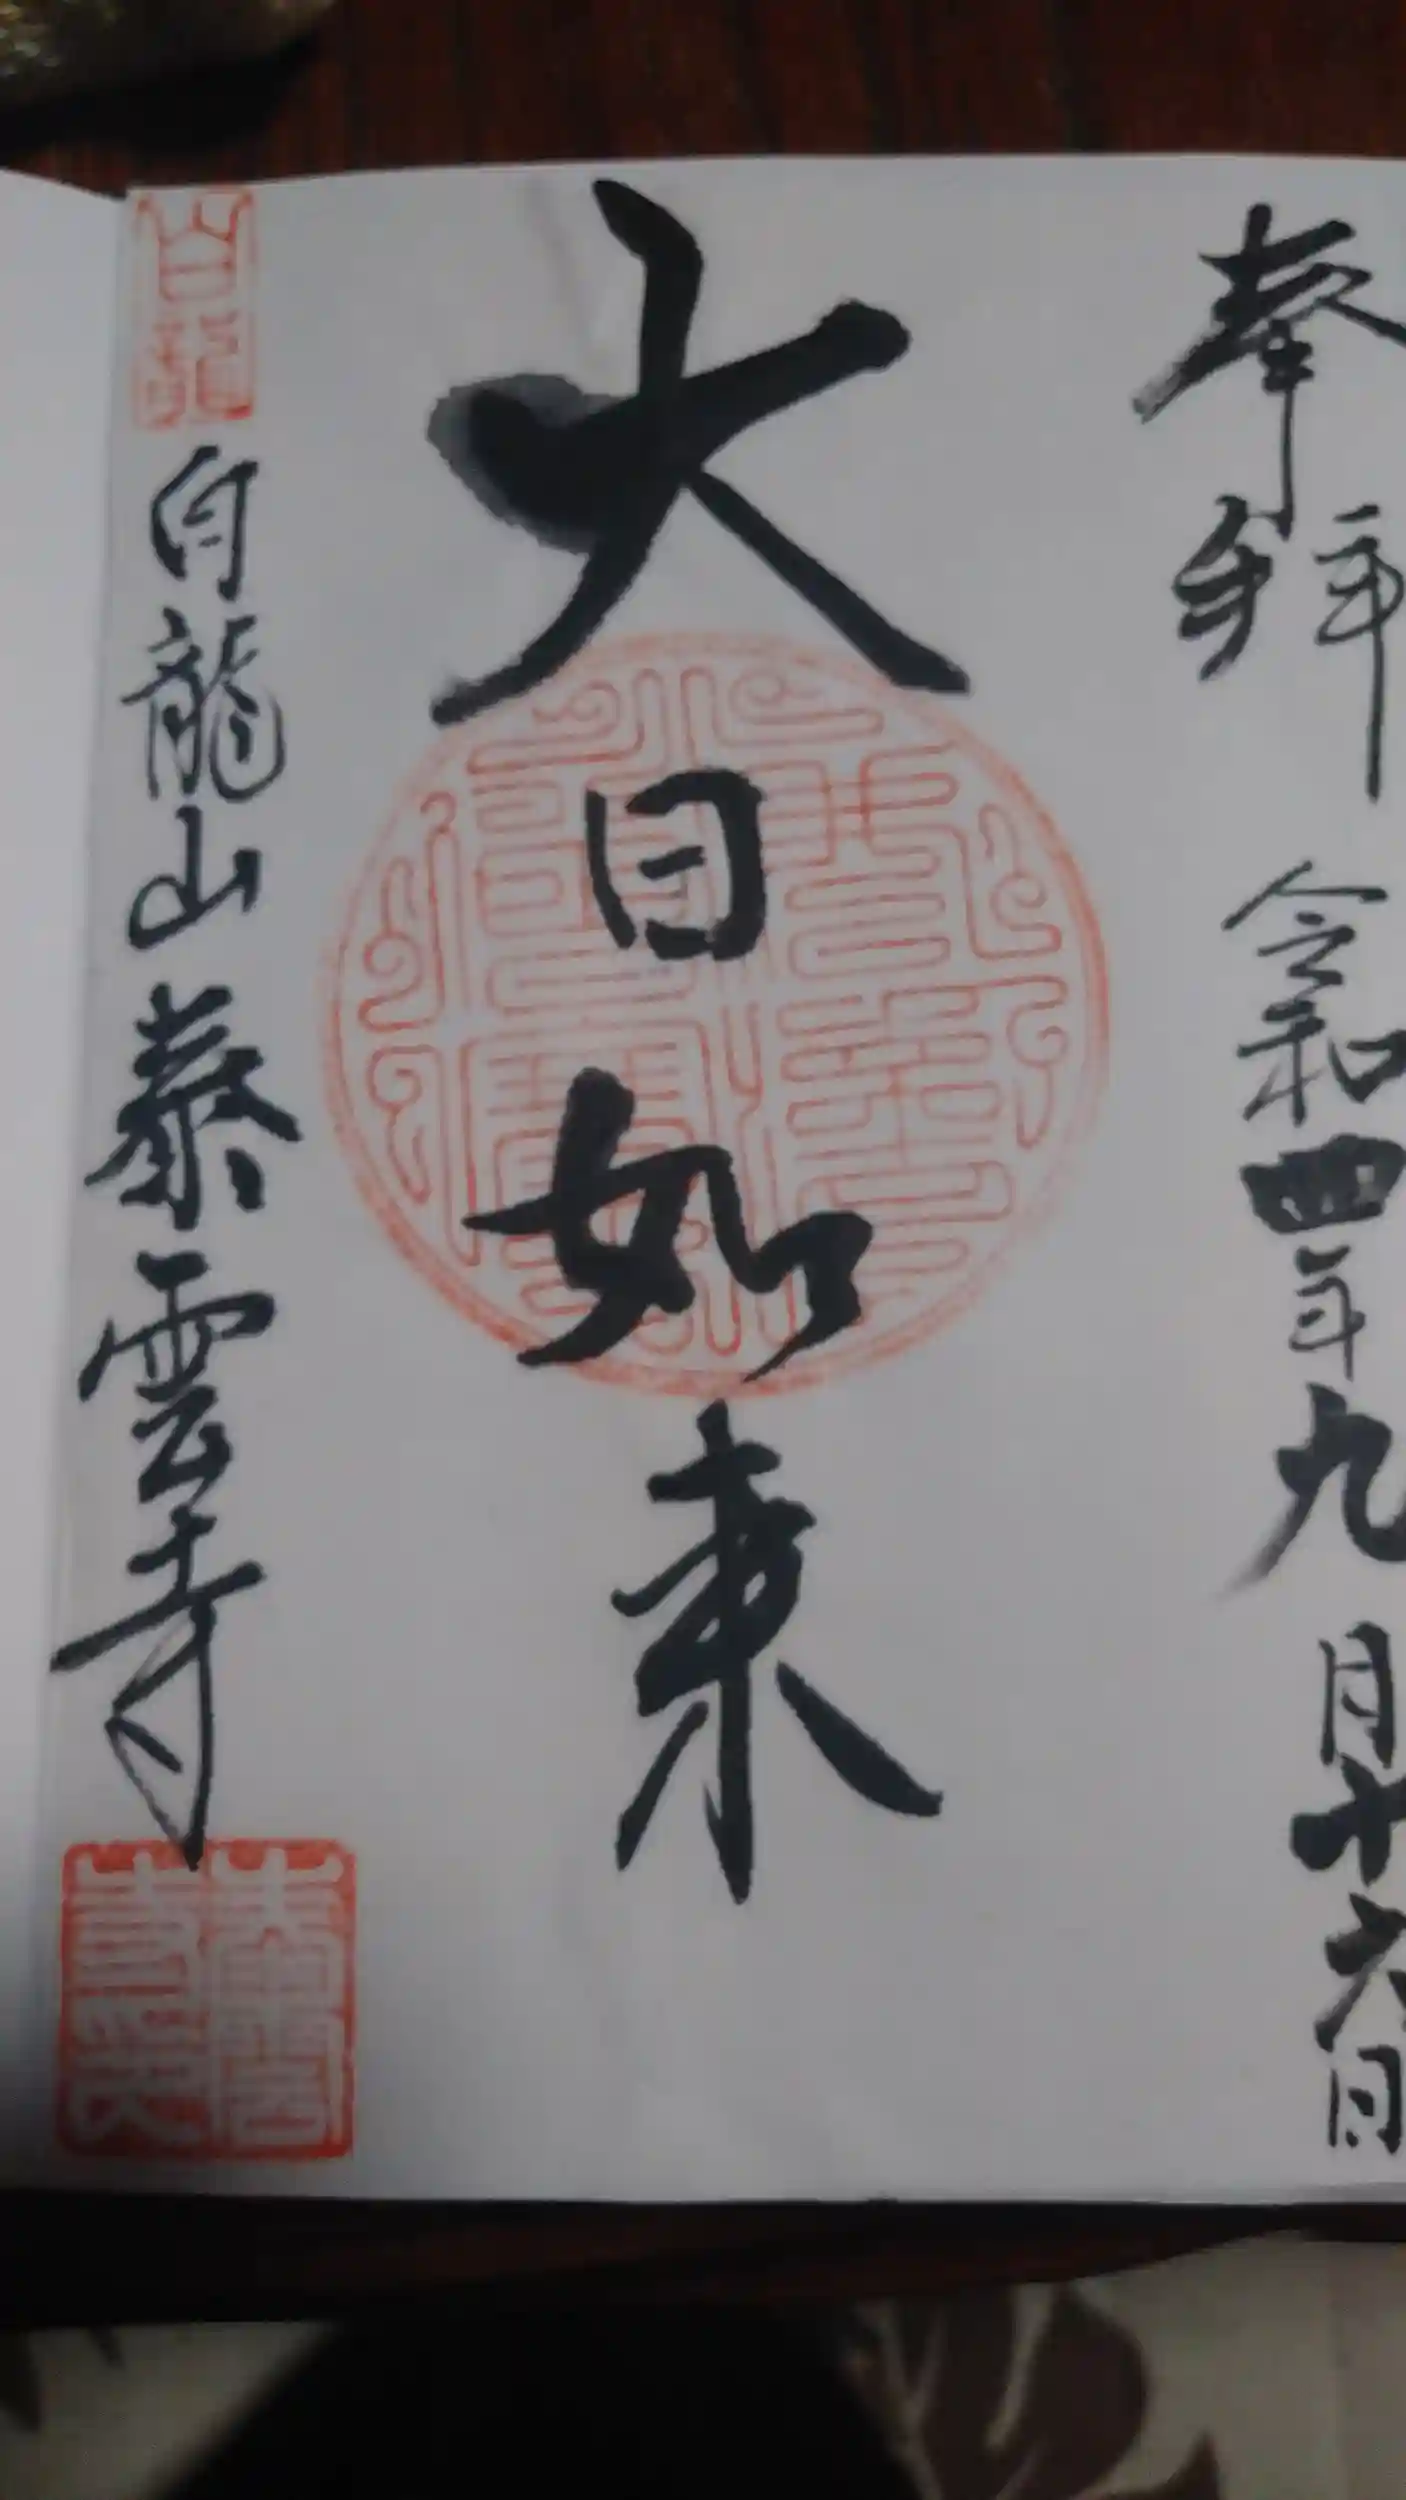 奉拜 令和四年九月十六日
大日如来
白龍
白龍山泰雲寺